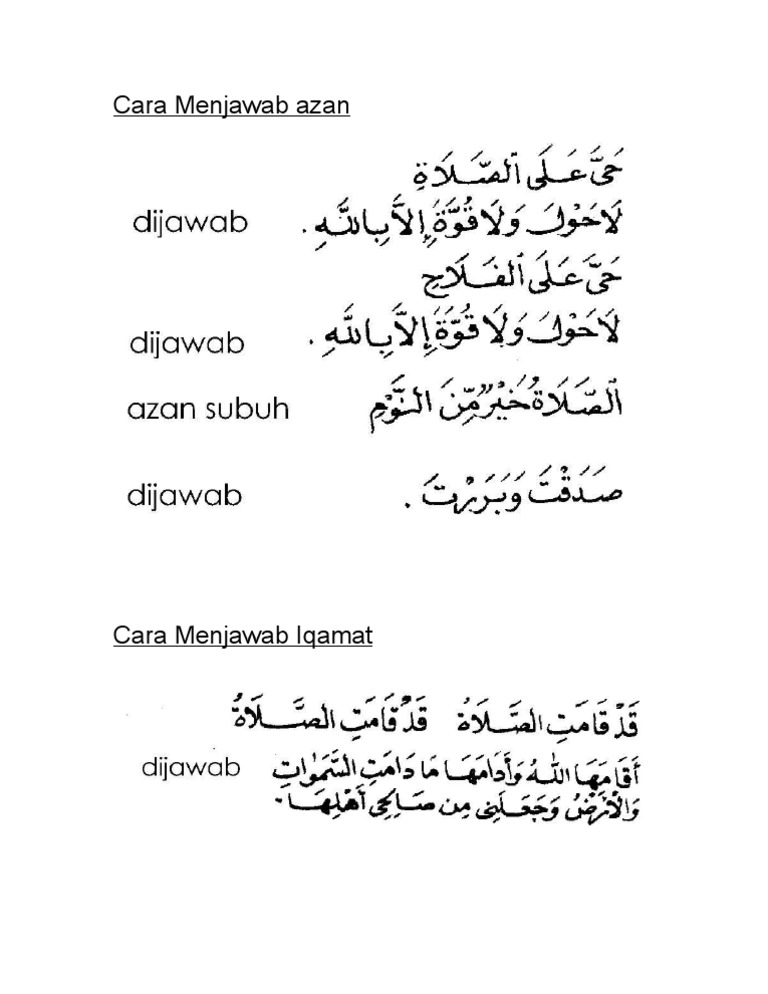 Cara Menjawab azan
حَيَّ عَلَى ٱلصَّلَاةِ
dijawab لَا حَوْلَ وَلَا قُوَّةَ إِلاَّ بِاللَّهِ .
حَيَّ عَلَى ٱلفَلَاحِ
dijawab لَا حَوْلَ وَلَا قُوَّةَ إِلاَّ بِاللَّهِ .
azan subuh ٱلصَّلَاةُ خَيْرٌ مِّنَ النَّوْمِ
dijawab صَدَقْتَ وَبَرَرْتَ .
Cara Menjawab Iqamat
قَدْ قَامَتِ الصَّلَاةُ قَدْ قَامَتِ الصَّلَاةُ
dijawab أَقَامَهَا اللَّهُ وَأَدَامَهَا مَا دَامَتِ السَّمَوَاتِ
وَالْأَرْضُ وَجَعَلَنِي مِن صَالِحِي أَهْلِهَا .